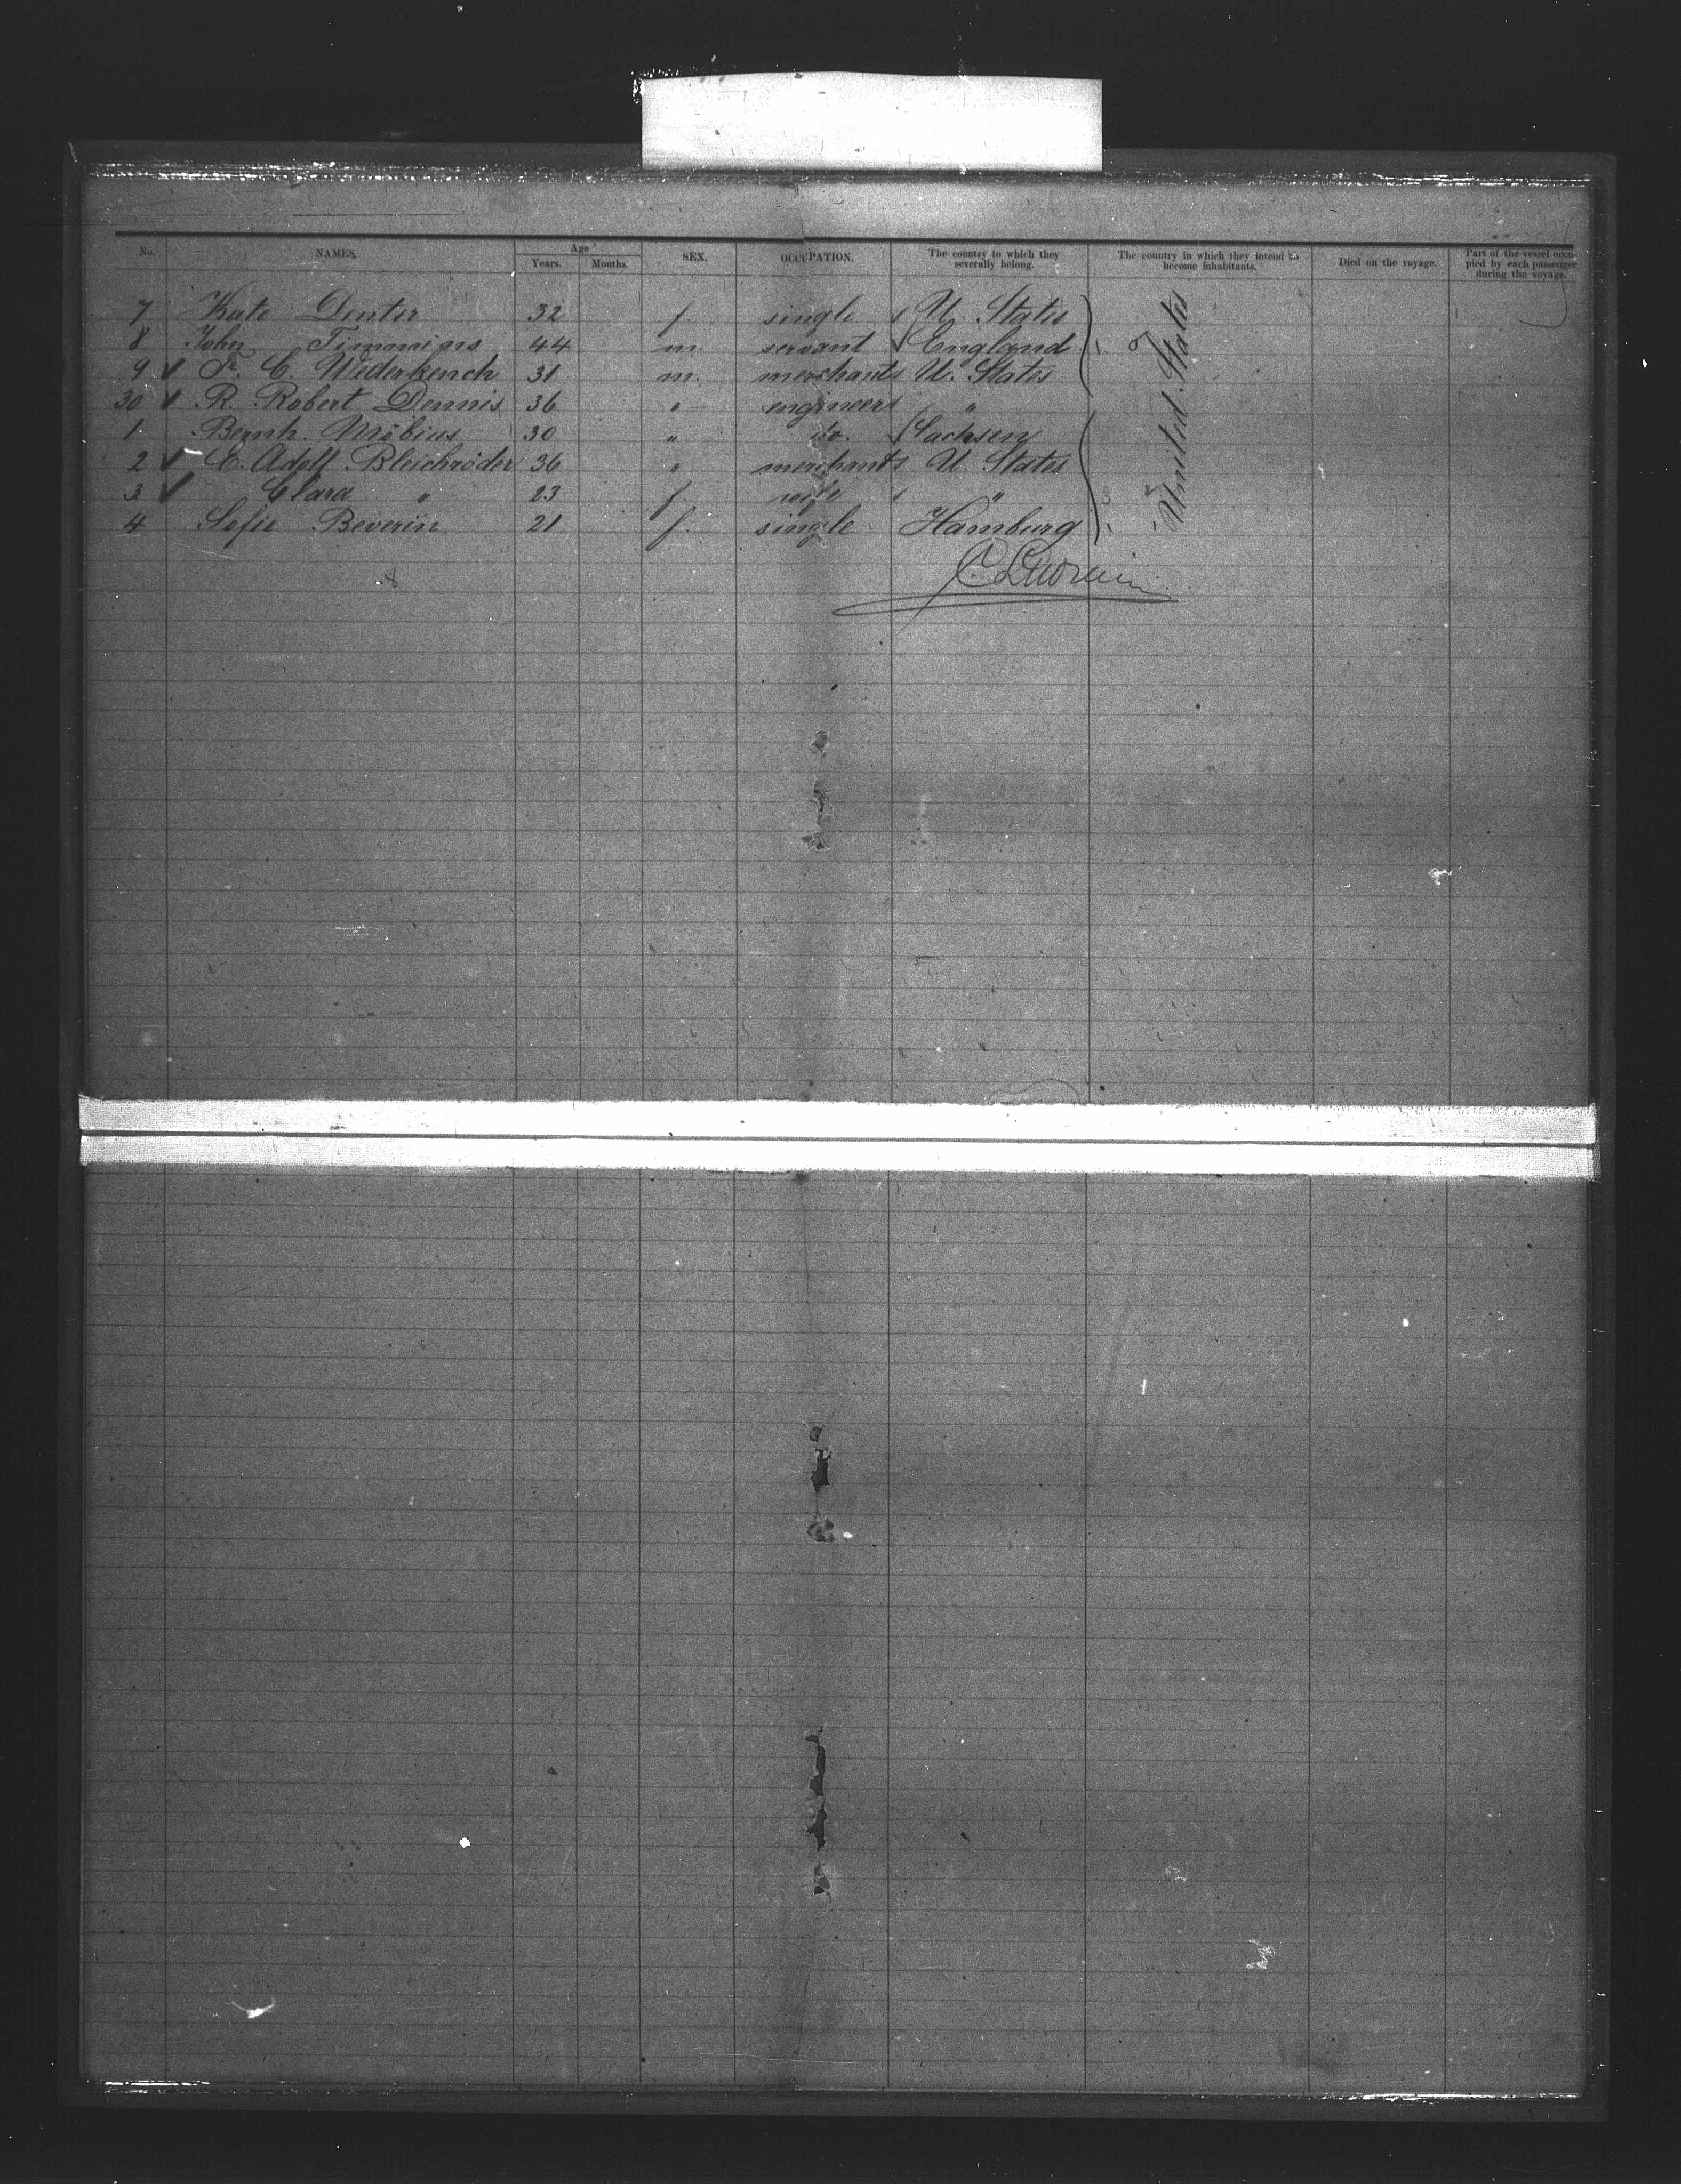 No. NAMES. Age Years. Months. SEX. OCCUPATION. The country to which they severally belong. The country in which they intend to become inhabitants. Died on the voyage. Part of the vessel occupied by each passenger during the voyage.
7 Kate Denter 32 f. single U. States
8 John Timmins 44 m. servant England
9 F. C. Wederkench 31 m. merchant U. States
30 R. Robert Dennis 36 " engineer "
1 Bernh. Möbius 30 " do. Sachsen
2 E. Adolf Bleichröder 36 " merchant U. States
3 Clara " 23 f. wife "
4 Sofie Beverin 21 f. single Hamburg
United States